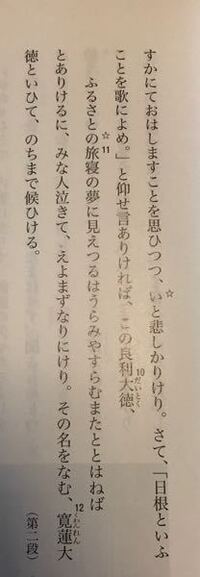 すかにておはしますことを思ひつつ、いと☆悲しかりけり。さて、「日根といふ
ことを歌によめ。」と仰せ言ありければ、この良利大徳、10だいとく
☆11ふるさとの旅寝の夢に見えつるはうらみやすらむまたととはねば
とありけるに、みな人泣きて、えよまずなりにけり。その名をなむ、12寛蓮大くわんれん
徳といひて、のちまで候ひける。
（第二段）